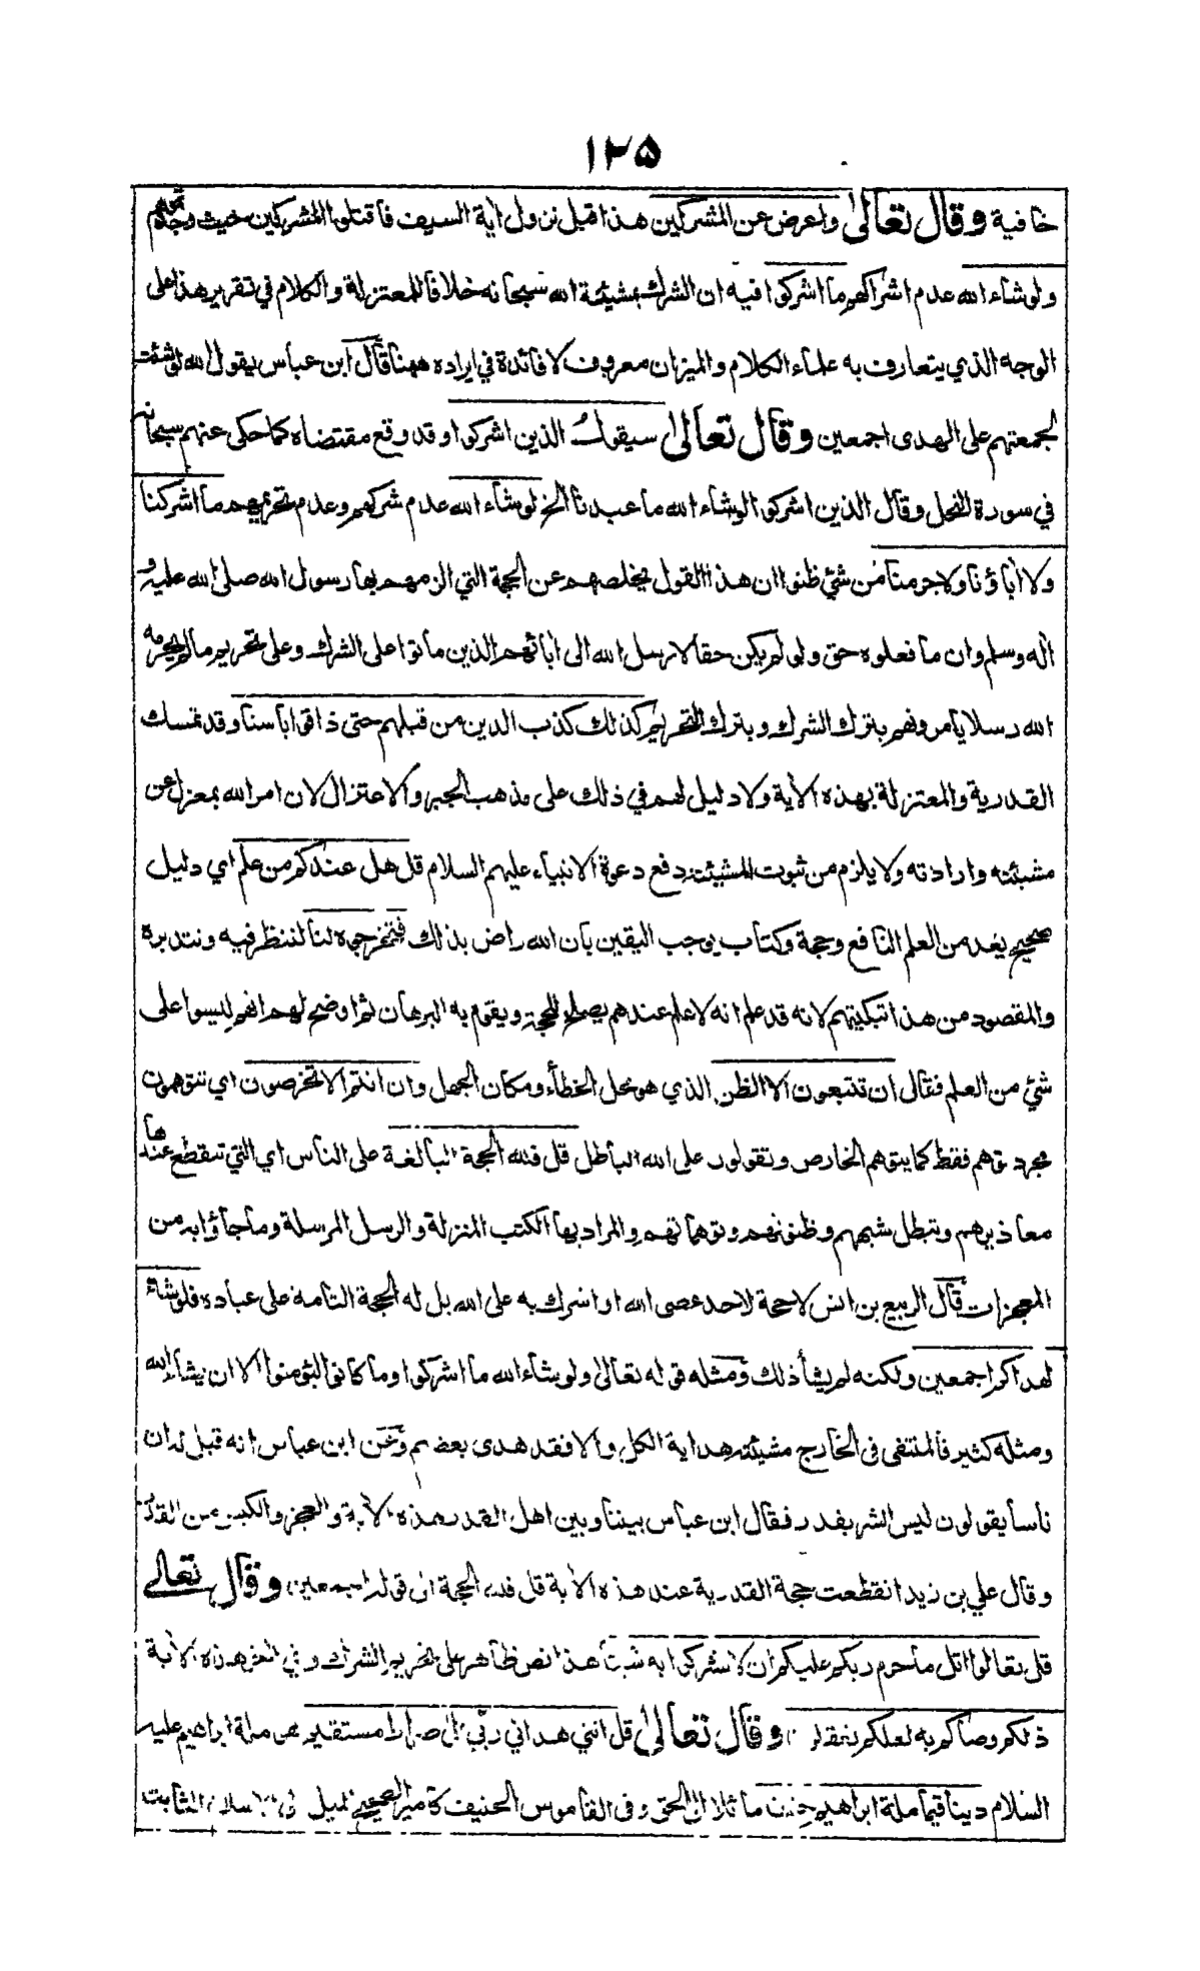 ١٢٥
خافية وقال تعالى واعرض عن المشركين هذا قبل نزول اية السيف فاقتلوا المشركين حيث وجدتموهم
ولو شاء الله عدم اشراكهم ما اشركوا فيه ان الشرك بمشيئة الله سبحانه خلافا للمعتزلة والكلام في تقرير هذا على
الوجه الذي يتعارف به علماء الكلام والميزان معروف لا فائدة في ايراده ههنا قال ابن عباس يقول الله لو شئت
لجمعتهم على الهدى اجمعين وقال تعالى سيقول الذين اشركوا وقد وقع مقتضاه كما حكى عنهم سبحانه
في سورة النحل وقال الذين اشركوا لو شاء الله ما عبدنا الخ لو شاء الله عدم شركهم وعدم تحريمهم ما اشركنا
ولا اباؤنا ولا حرمنا من شيء ظنوا ان هذا القول يخلصهم عن الحجة التي الزمهم بها رسول الله صلى الله عليه و
اله وسلم وان ما فعلوه حق ولو لم يكن حقا لارسل الله الى ابائهم الذين ماتوا على الشرك وعلى تحريم ما لم يحرمه
الله رسلا يامرونهم بترك الشرك وبترك التحريم كذلك كذب الذين من قبلهم حتى ذاقوا باسنا وقد تمسك
القدرية والمعتزلة بهذه الاية ولا دليل لهم في ذلك على مذهب الجبر والاعتزال لان امر الله بمعزل عن
مشيئته وارادته ولا يلزم من ثبوت المشيئة دفع دعوة الانبياء عليهم السلام قل هل عندكم من علم اي دليل
صحيح يعد من العلم النافع وحجة وكتاب يوجب اليقين بان الله راض بذلك فتخرجوه لنا لننظر فيه ونتدبره
والمقصود من هذا تبكيتهم لانه قد علم انه لا علم عندهم يصلح للحجة ويقوم به البرهان ثم اوضح لهم انهم ليسوا على
شيء من العلم فقال ان تتبعون الا الظن الذي هو محل الخطأ ومكان الجهل وان انتم الا تخرصون اي تتوهمون
مجرد توهم فقط كما يتوهم الخارص وتقولون على الله الباطل قل فلله الحجة البالغة على الناس اي التي تنقطع عندها
معاذيرهم وتبطل شبههم وظنونهم وتوهماتهم والمراد بها الكتب المنزلة والرسل المرسلة وما جاؤا به من
المعجزات قال الربيع بن انس لا حجة لاحد عصى الله او اشرك به على الله بل له الحجة التامة على عباده فلو شاء
لهداكم اجمعين ولكنه لم يشأ ذلك ومثله قوله تعالى ولو شاء الله ما اشركوا وما كانوا ليؤمنوا الا ان يشاء الله
ومثله كثير فالمنتفى في الخارج مشيئته هداية الكل والا فقد هدى بعضهم وعن ابن عباس انه قيل له ان
ناسا يقولون ليس الشر بقدر فقال ابن عباس بيننا وبين اهل القدر هذه الاية والعجز والكيس من القدر
وقال علي بن زيد انقطعت حجة القدرية عند هذه الاية قل فلله الحجة الى قوله اجمعين وقال تعالى
قل تعالوا اتل ما حرم ربكم عليكم ان لا تشركوا به شيئا هذا نص ظاهر على تحريم الشرك وفي اخر هذه الاية
ذلكم وصاكم به لعلكم تعقلون وقال تعالى قل انني هداني ربي الى صراط مستقيم هو ملة ابراهيم عليه
السلام دينا قيما ملة ابراهيم حنيفا مائلا الى الحق وفي القاموس الحنيف كامير الصحيح الميل الى الاسلام الثابت